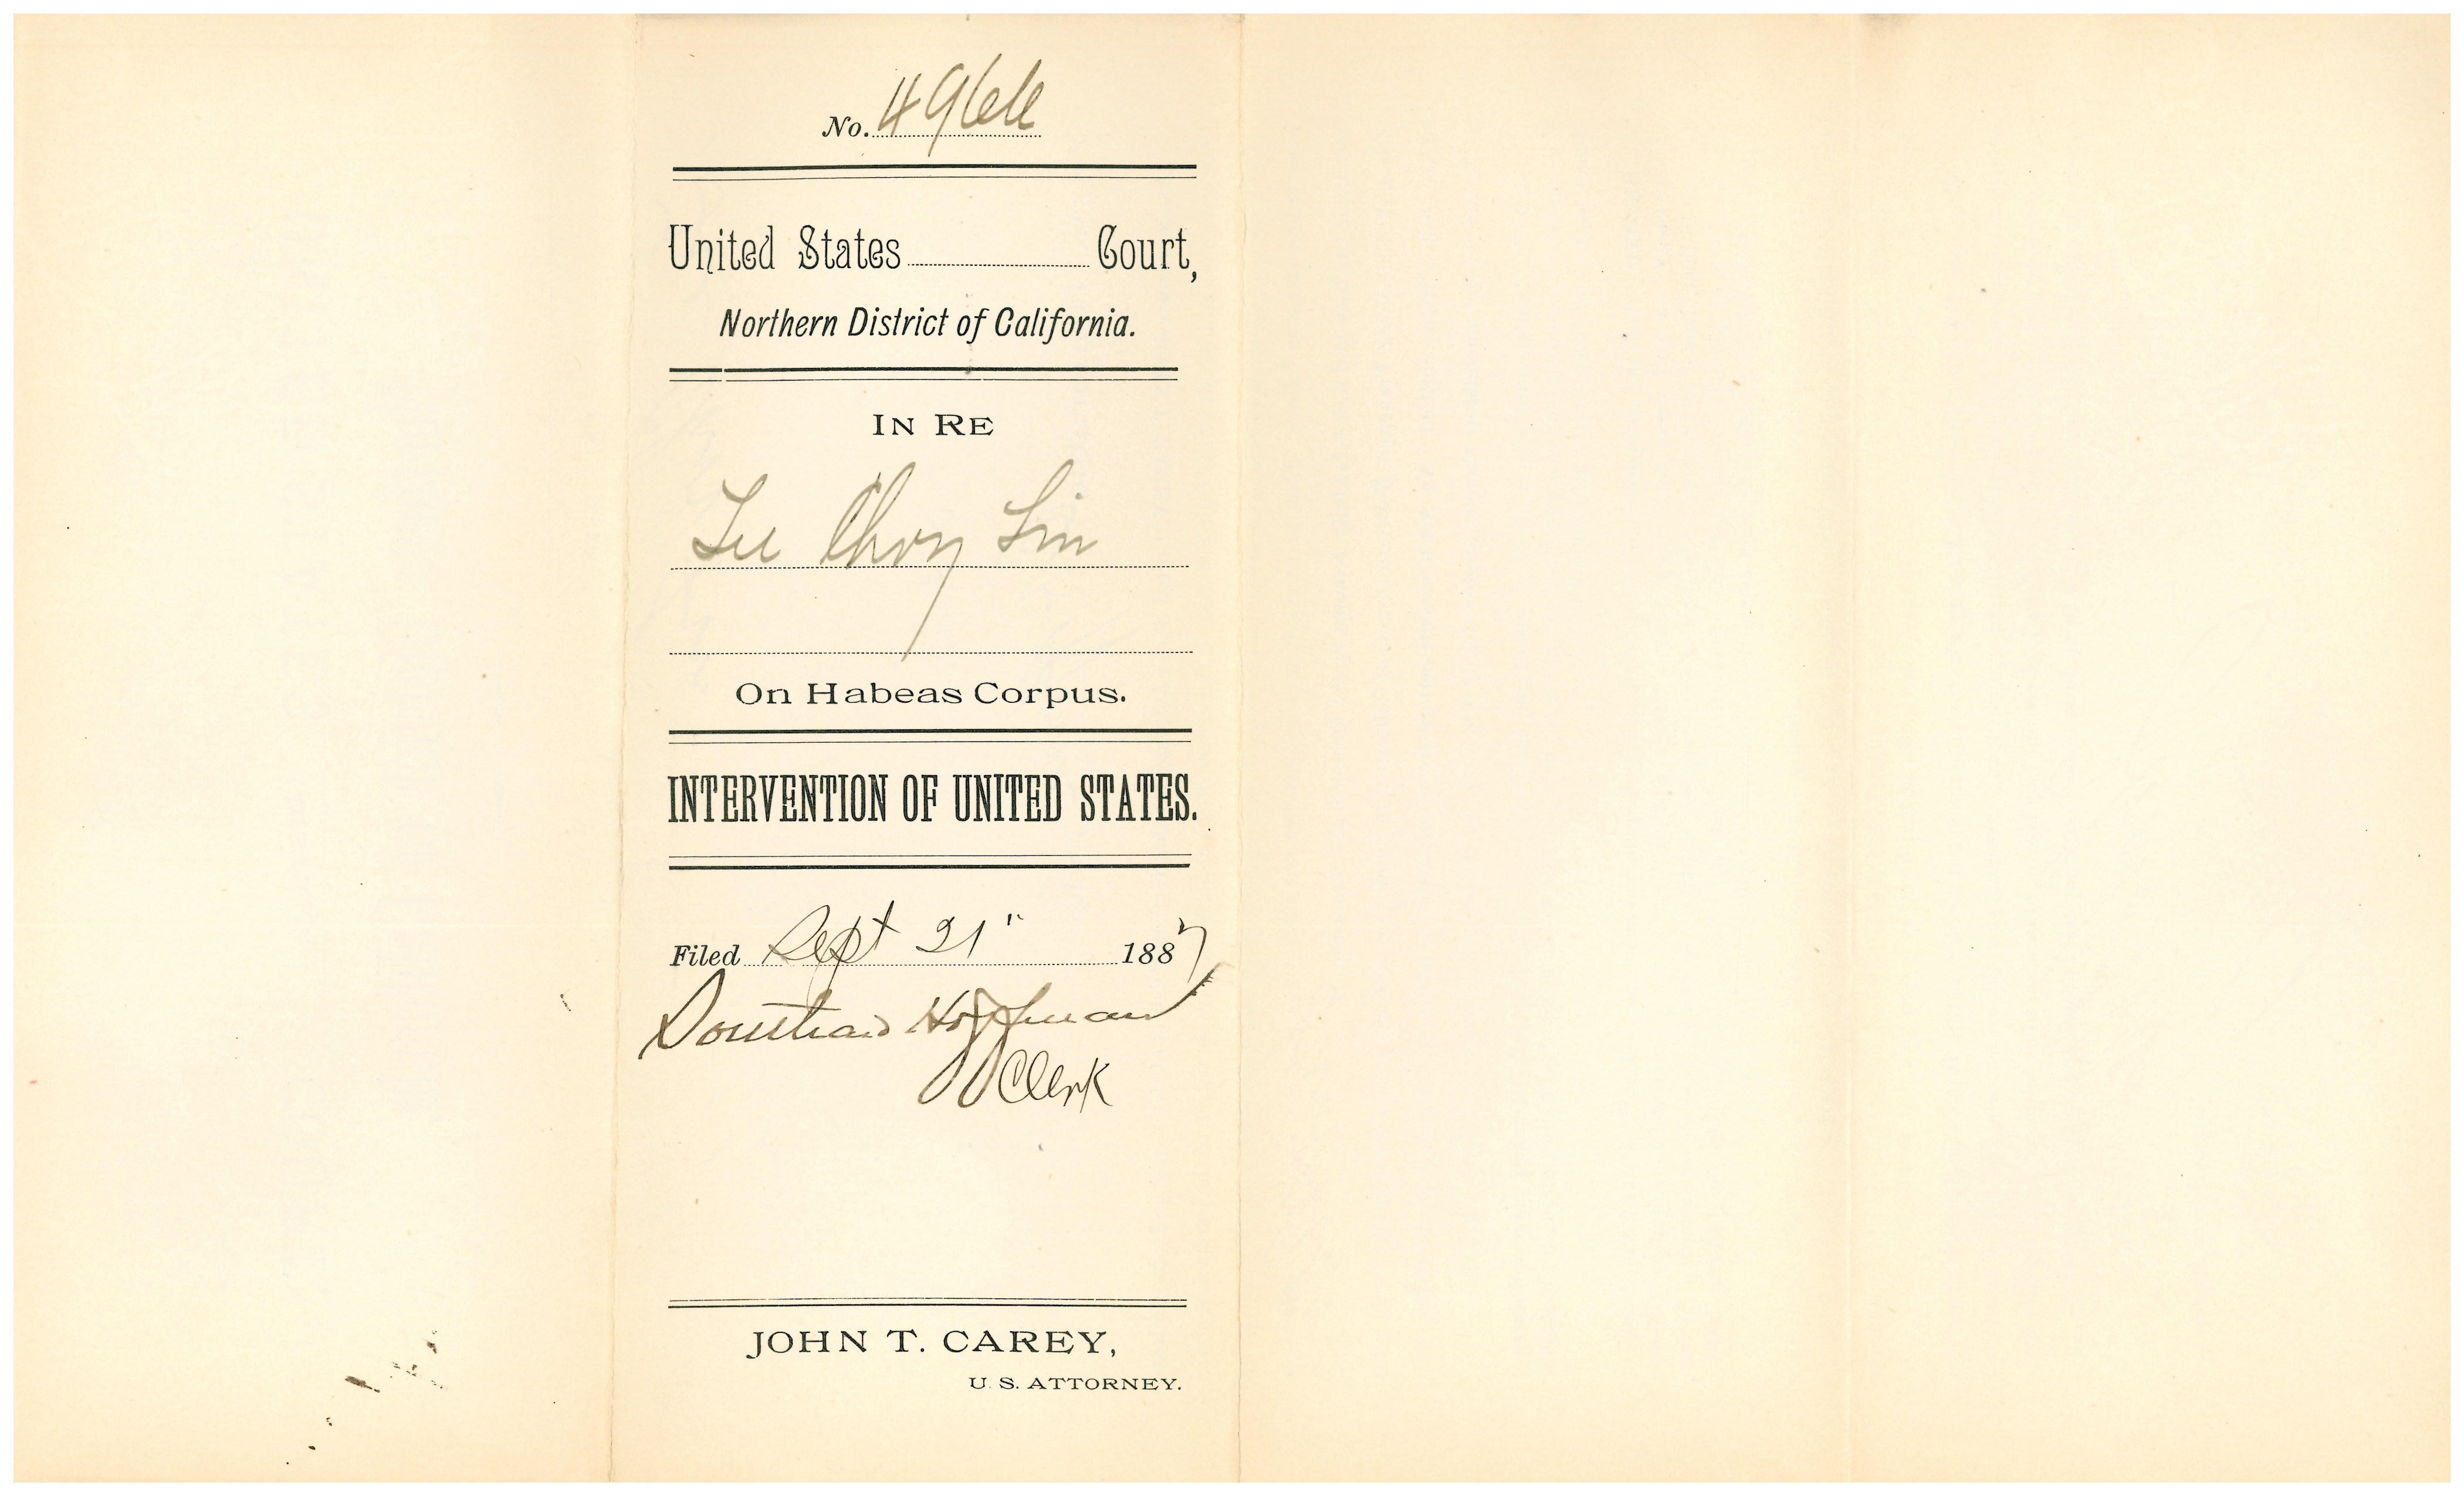 No. 4966
United States Court,
Northern District of California.
IN RE
Lee Choy Sin
On Habeas Corpus.
INTERVENTION OF UNITED STATES.
Filed Sept 21" 1887
Southard Hoffman
Clerk
JOHN T. CAREY,
U. S. ATTORNEY.